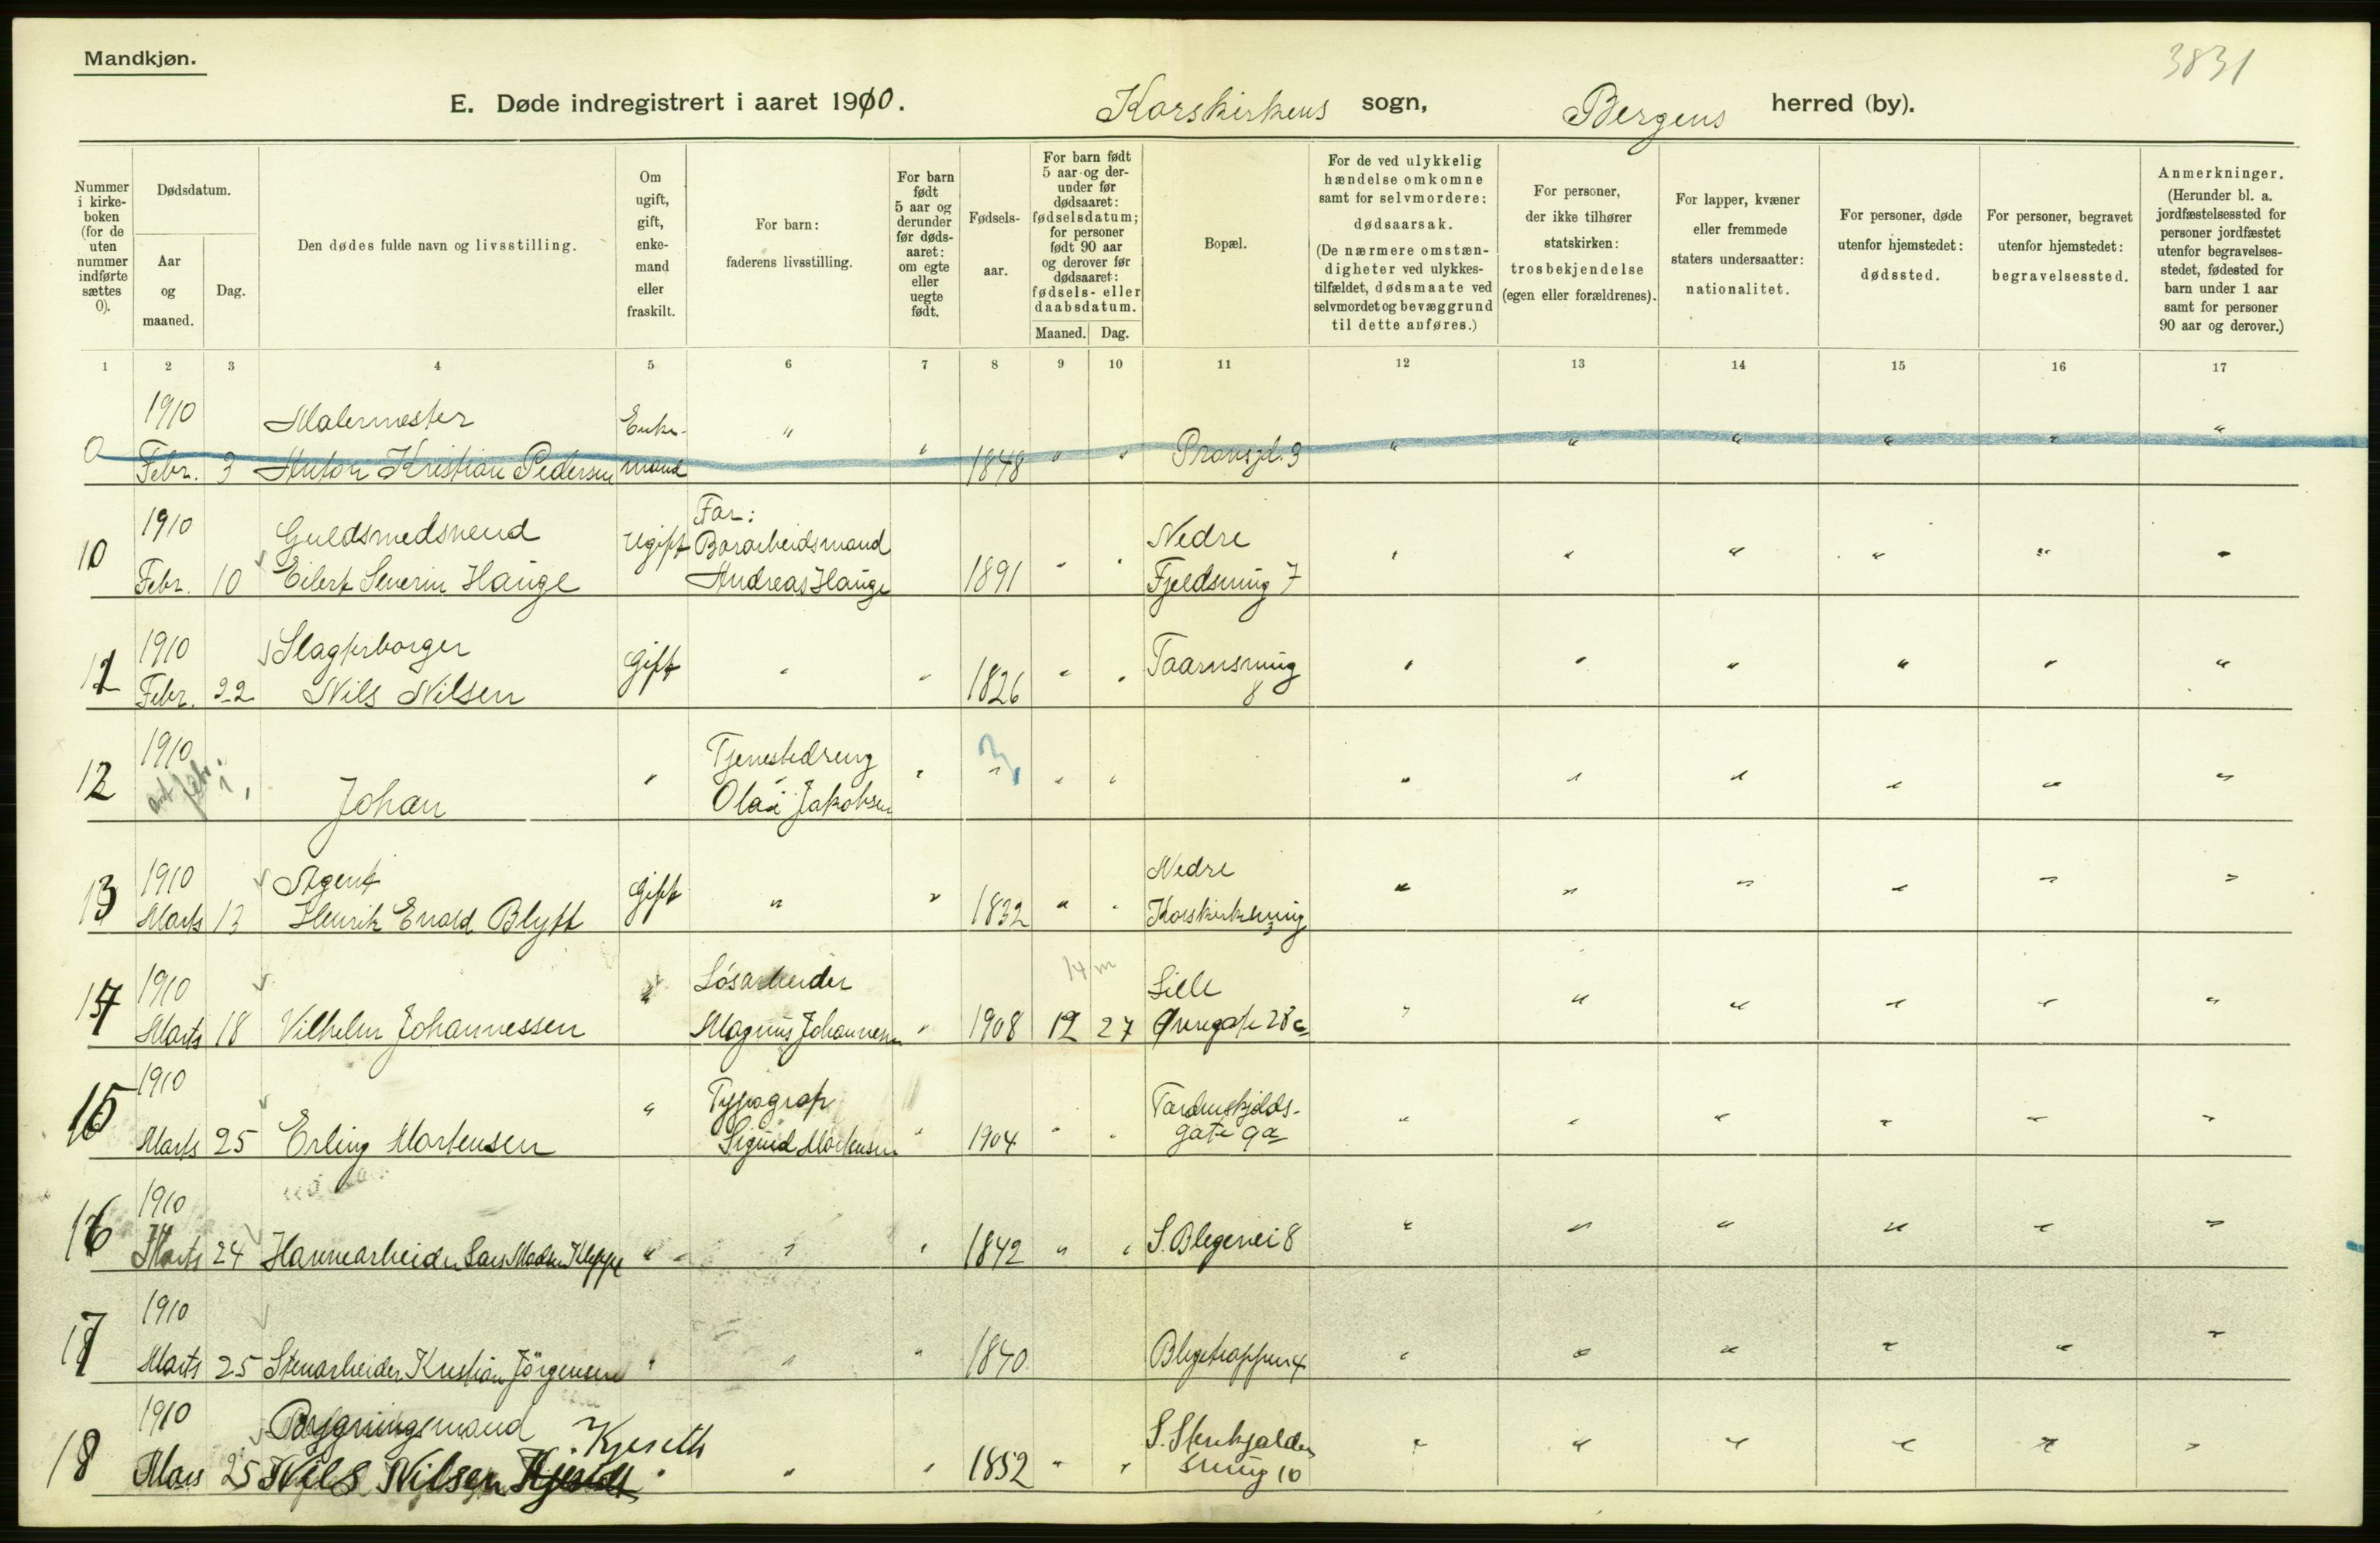 Mandkjøn.
3831
E. Døde indregistrert i aaret 1910. Korskirkens sogn, Bergens herred (by).
Nummer i kirke-boken (for de uten nummer indførte sættes 0).
Dødsdatum.
Aar og maaned.
Dag.
Den dødes fulde navn og livsstilling.
Om ugift, gift, enke-mand eller fraskilt.
For barn: faderens livsstilling.
For barn født 5 aar og derunder før døds-aaret: om egte eller uegte født.
Fødsels-aar.
For barn født 5 aar og der-under før dødsaaret: fødselsdatum; for personer født 90 aar og derover før dødsaaret: fødsels- eller daabsdatum.
Maaned. Dag.
Bopæl.
For de ved ulykkelig hændelse omkomne samt for selvmordere: dødsaarsak. (De nærmere omstæn-digheter ved ulykkes-tilfældet, dødsmaate ved selvmordet og bevæggrund til dette anføres.)
For personer, der ikke tilhører statskirken: trosbekjendelse (egen eller forældrenes).
For lapper, kvæner eller fremmede staters undersaatter: nationalitet.
For personer, døde utenfor hjemstedet: dødssted.
For personer, begravet utenfor hjemstedet: begravelsessted.
Anmerkninger. (Herunder bl. a. jordfæstelsessted for personer jordfæstet utenfor begravelses-stedet, fødested for barn under 1 aar samt for personer 90 aar og derover.)
1 2 3 4 5 6 7 8 9 10 11 12 13 14 15 16 17
1910 Malermester Enke- "
0 Febr. 3 Anton Kristian Pedersen mand " 1848 " " Pransgd. 3 " " " " " "
1910 Guldsmedsvend Ugift Far: Bararbeidsmand Nedre
10 Febr. 10 Eilert Severin Hauge Andreas Hauge 1891 " " Fjeldsmug 7 " " " " " "
1910 Slagterborger Gift " Taarnsmug
11 Febr. 22 Nils Nilsen " 1826 " " 8 " " " " " "
1910 Tjenestedreng
12 ant. febr. Johan " Olai Jakobsen " " " " " " " " " "
1910 Agent Gift " Nedre
13 Marts 13 Henrik Evard Blytt " 1832 " " Korskirksmug " " " " " "
1910 " Løsarbeider 14 m Lille
14 Marts 18 Vilhelm Johannessen Magnus Johannesen " 1908 12 27 Øvregate 28c " " " " " "
1910 " Typograf Tordenskjolds-
15 Marts 25 Erling Mortensen Sigurd Mortensen " 1904 " " gate 9a " " " " " "
1910
16 Marts 24 Havnearbeider Lars Madsen Kleppe " " " 1842 " " S. Blegevei 8 " " " " " "
1910
17 Marts 25 Stenarbeider Kristian Jörgensen " " " 1840 Blegetrappen 4 " " " " " "
1910 Bygningsmand Kjerseth S. Stenkjelder
18 Mars 25 Nils Nilsen " " " 1852 " " smug 10 " " " " " "